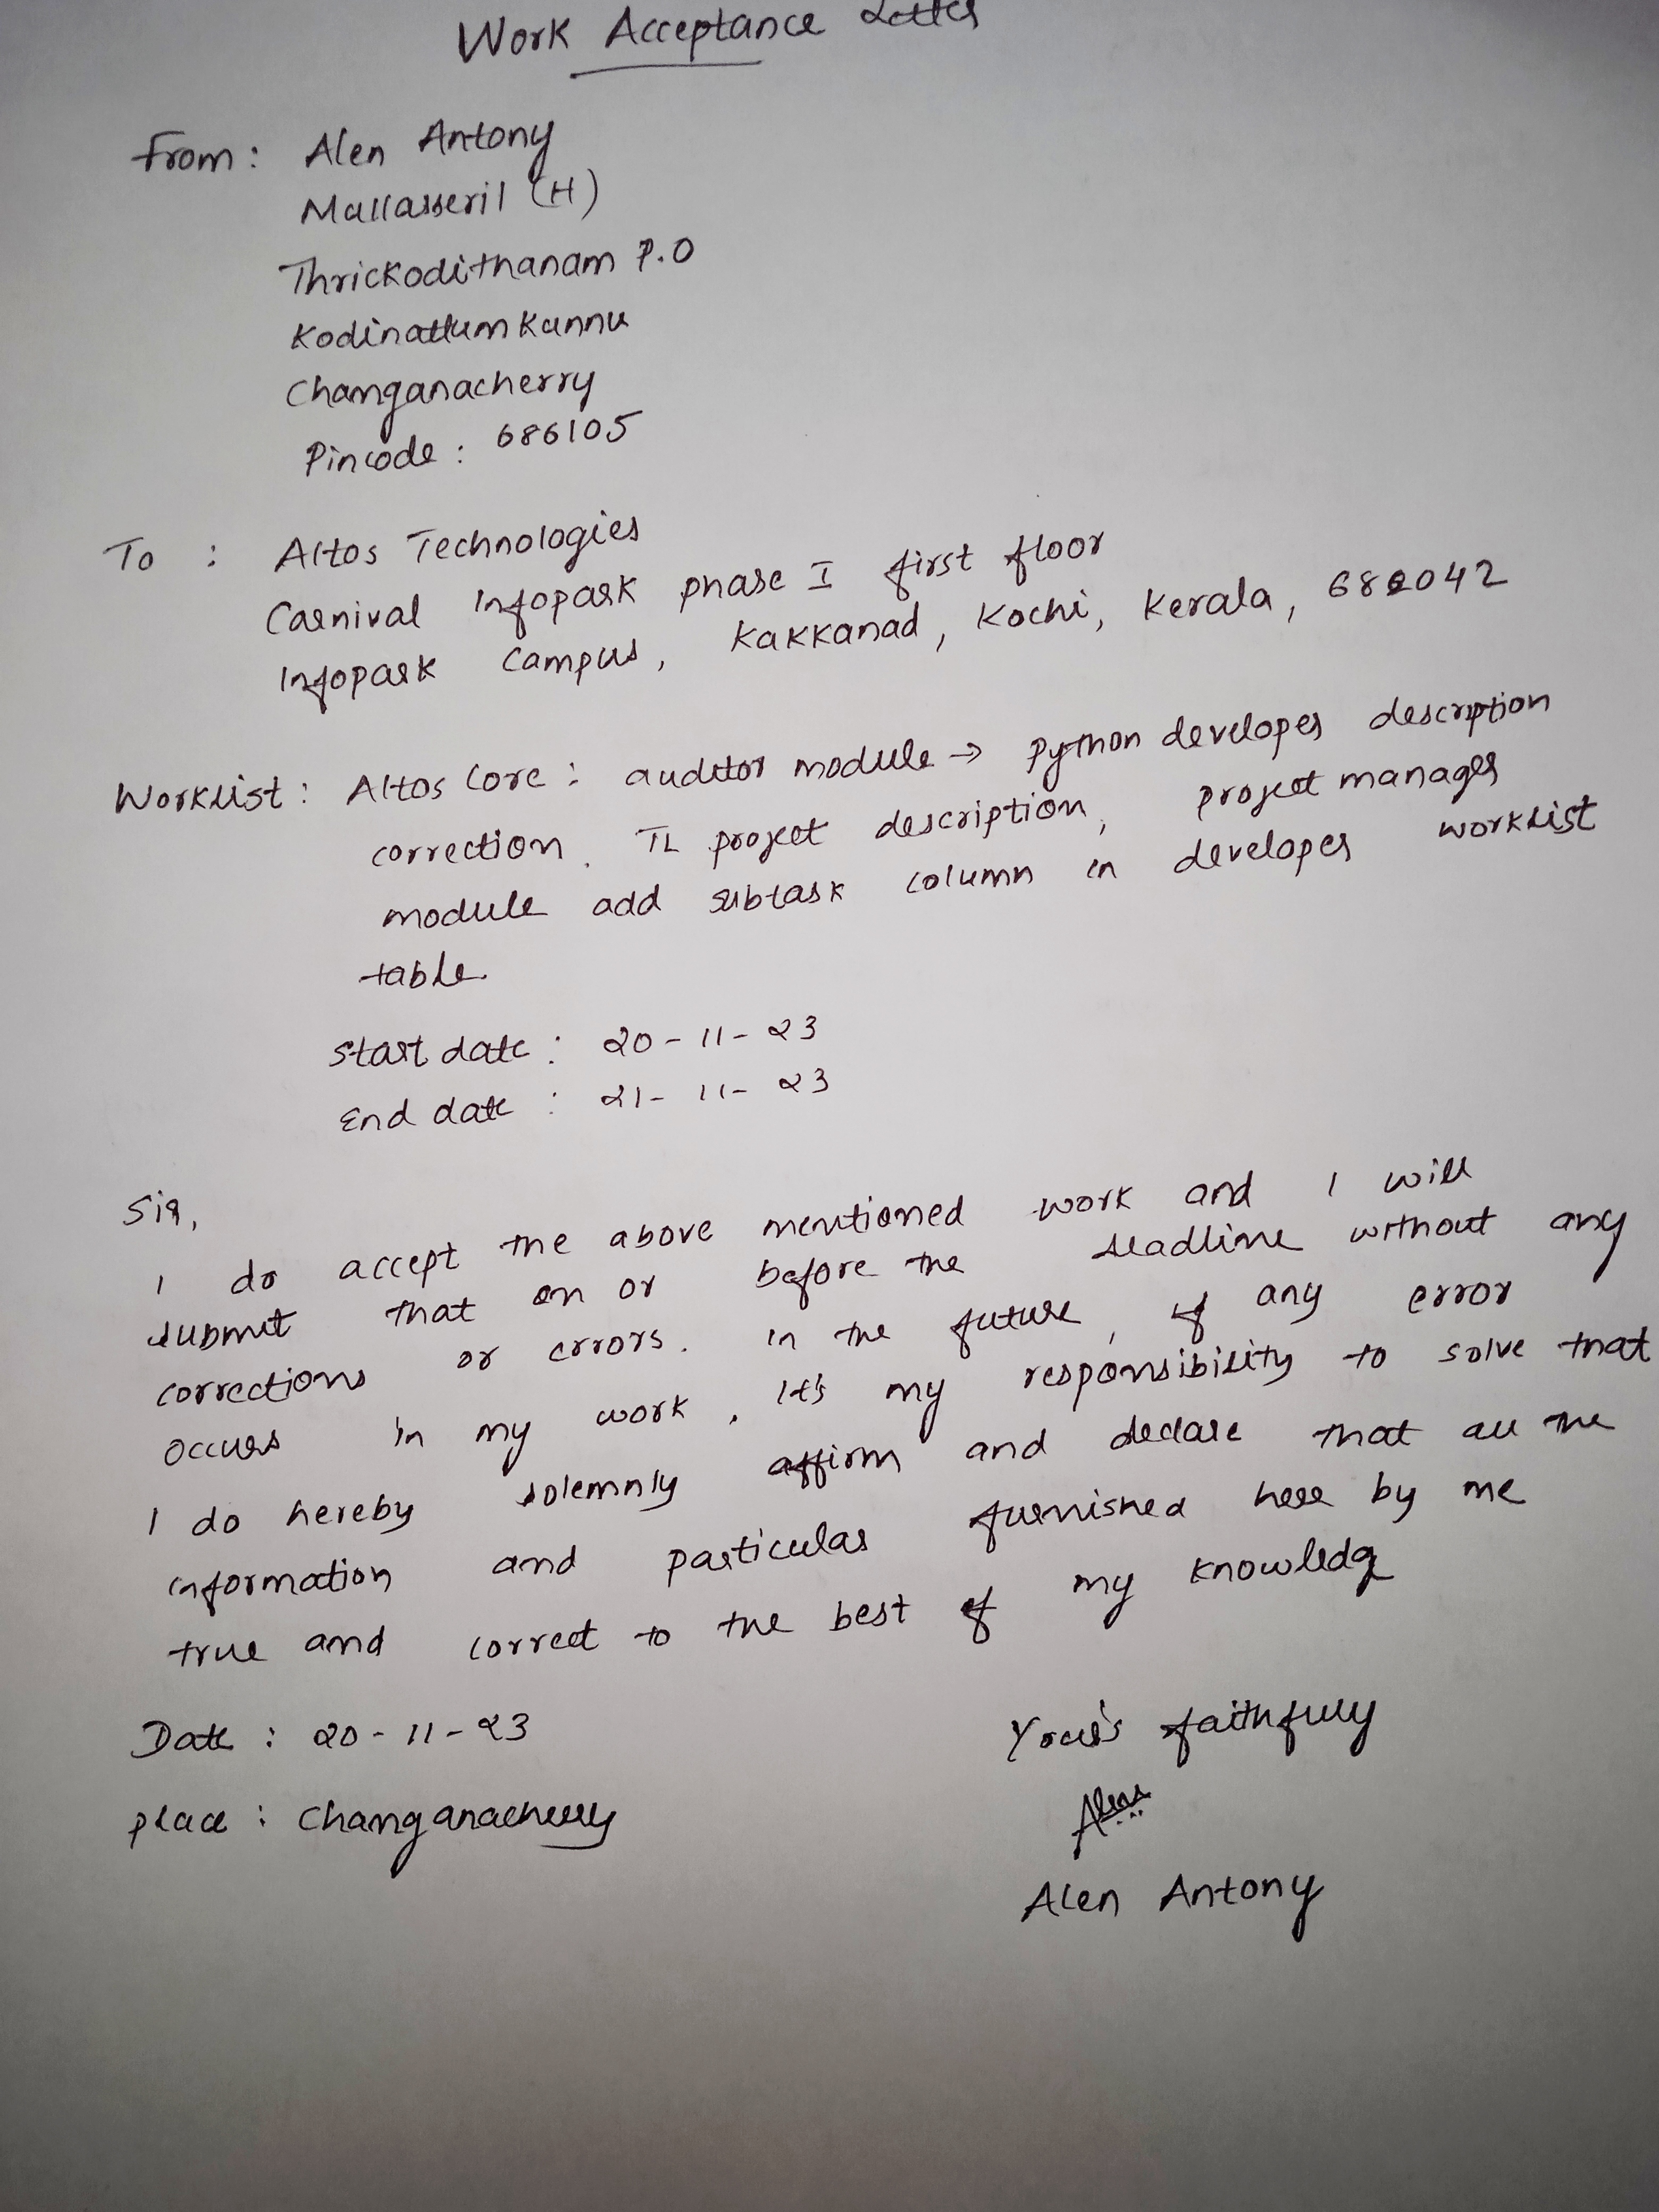 Work Acceptance Letter
From : Alen Antony
Mallasseril (H)
Thrickodithanam P.O
Kodinattumkunnu
Changanacherry
Pincode : 686105
To : Altos Technologies
Carnival Infopark phase I first floor
Infopark Campus, Kakkanad, Kochi, Kerala, 682042
Worklist : Altos Core : auditor module → python developer description
correction. TL project description, project manager
module add subtask column in developer worklist
table.
Start date : 20-11-23
End date : 21-11-23
Sir,
I do accept the above mentioned work and I will
submit that on or before the deadline without any
corrections or errors. In the future, if any error
occurs in my work, it's my responsibility to solve that
I do hereby solemnly affirm and declare that all the
information and particular furnished here by me
true and correct to the best of my knowledg
Date : 20-11-23
Place : Changanacherry
Your's faithfully
Alen
Alen Antony